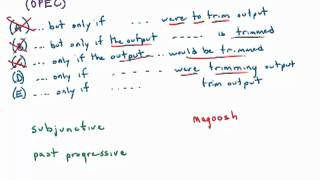 (OPEC)
(A) ... but only if ..... were to trim output
(B) ... but only if the output ..... is trimmed
(C) ... only if the output .... would be trimmed
(D) .... only if ..... were trimming output
(E) ... only if ..... trim output
subjunctive
magoosh
past progressive